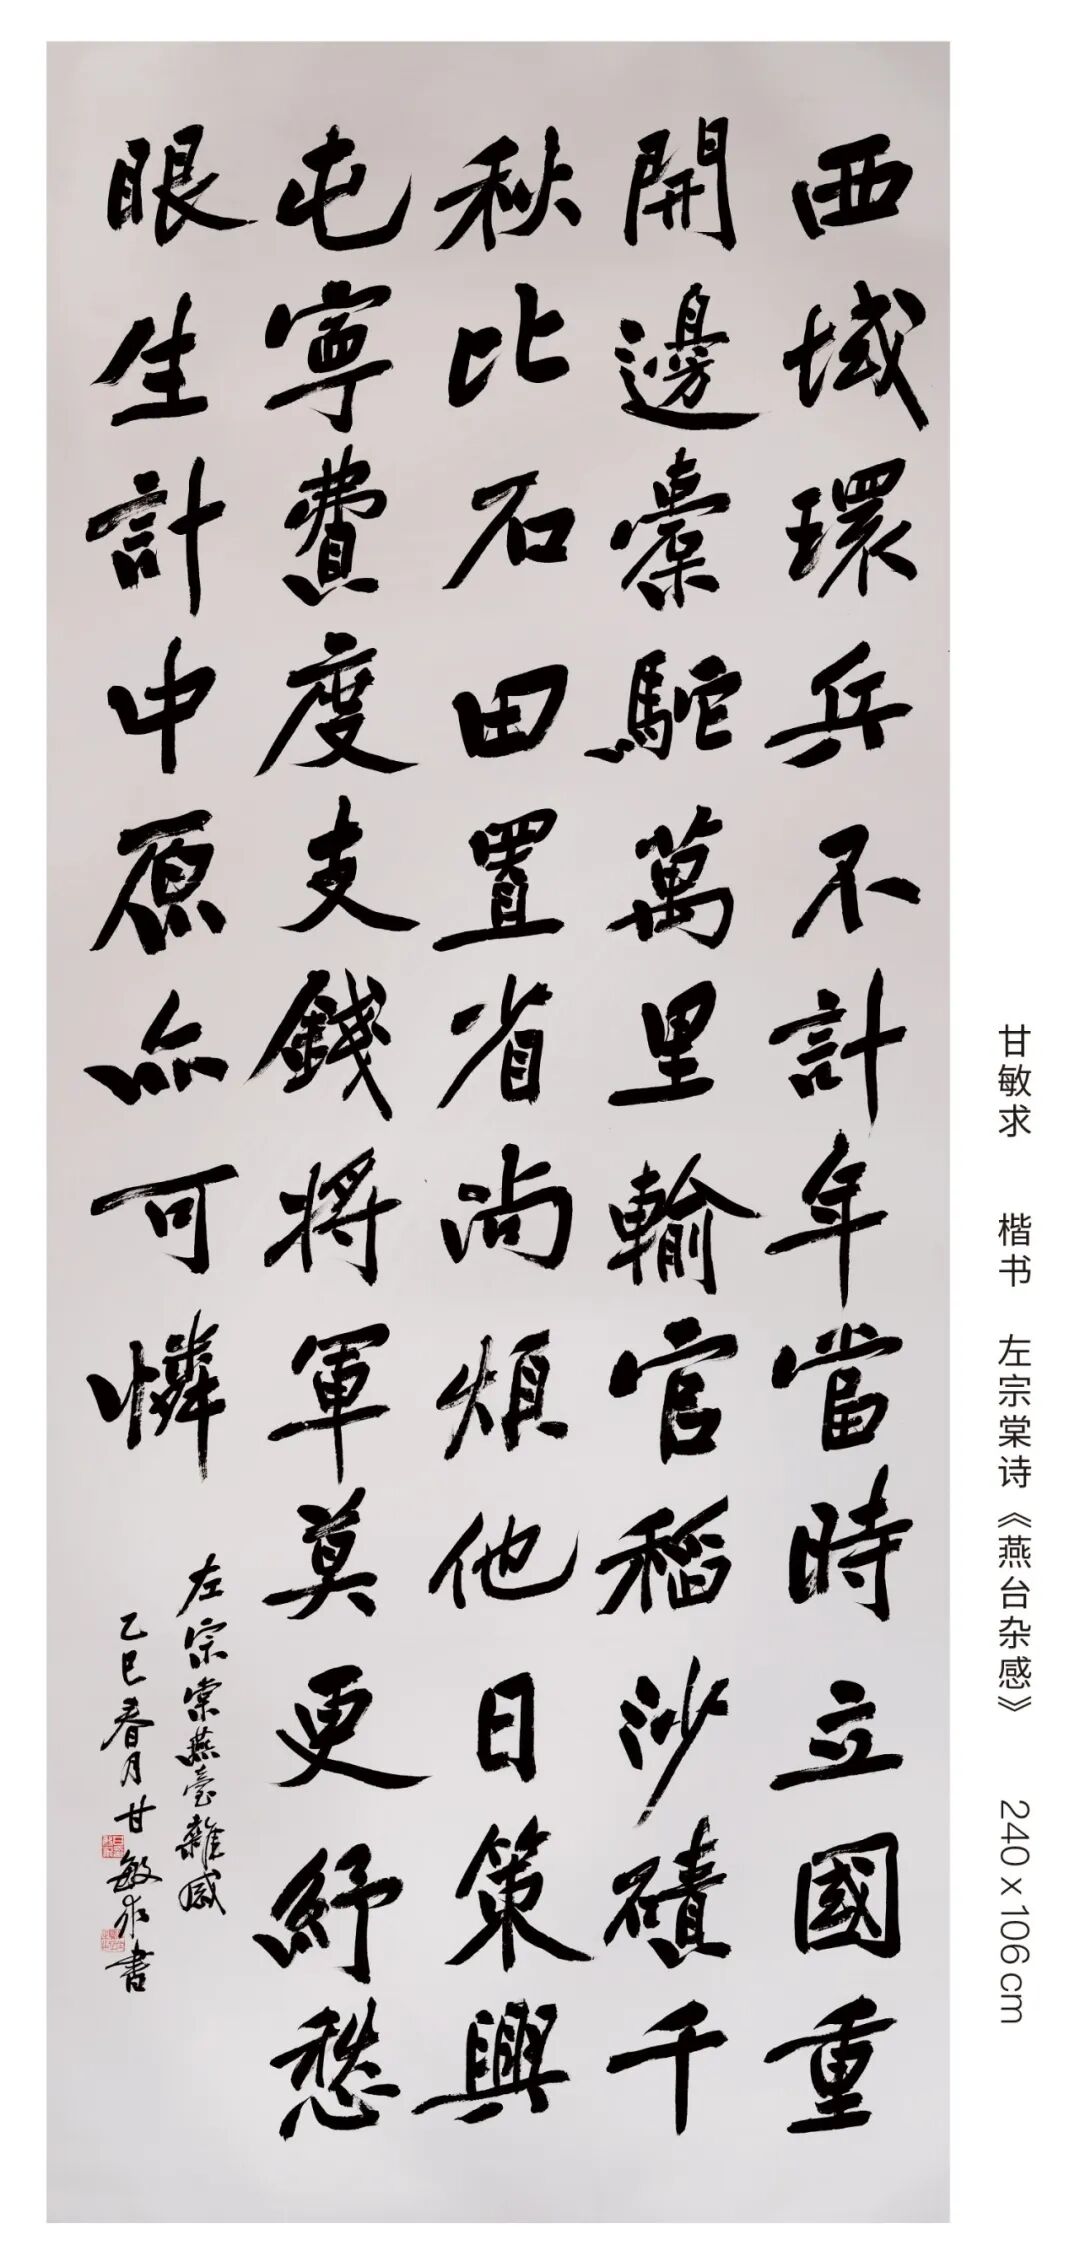 西域環兵不計年當時立國重
開邊橐駝萬里輸官稻沙磧千
秋比石田置省尚煩他日策興
屯寧費度支錢將軍莫更紓愁
眼生計中原亦可憐
左宗棠燕臺雜感
乙巳春月甘敏求書
甘敏求 楷书 左宗棠诗《燕台杂感》 240 x 106cm